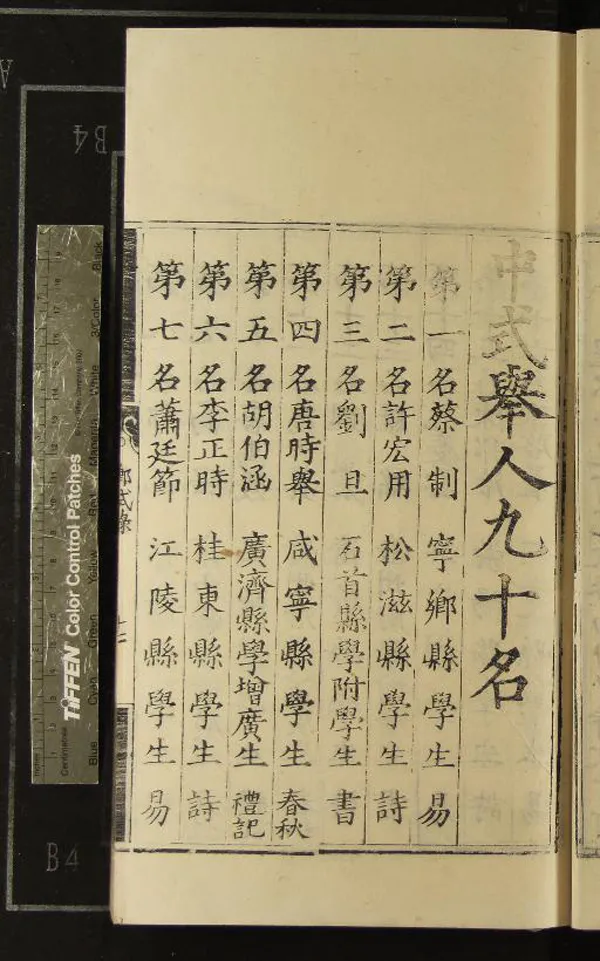 中式舉人九十名
第一名蔡制 寧鄉縣學生 易
第二名許宏用 松滋縣學生 詩
第三名劉旦 石首縣學附學生 書
第四名唐時舉 咸寧縣學生 春秋
第五名胡伯涵 廣濟縣學增廣生 禮記
第六名李正時 桂東縣學生 詩
第七名蕭廷節 江陵縣學生 易
TIFFEN Color Control Patches
Blue
Cyan
Green
Yellow
Red
Magenta
White
3/Color
Black
Centimetres
Inches
B4
B4
A